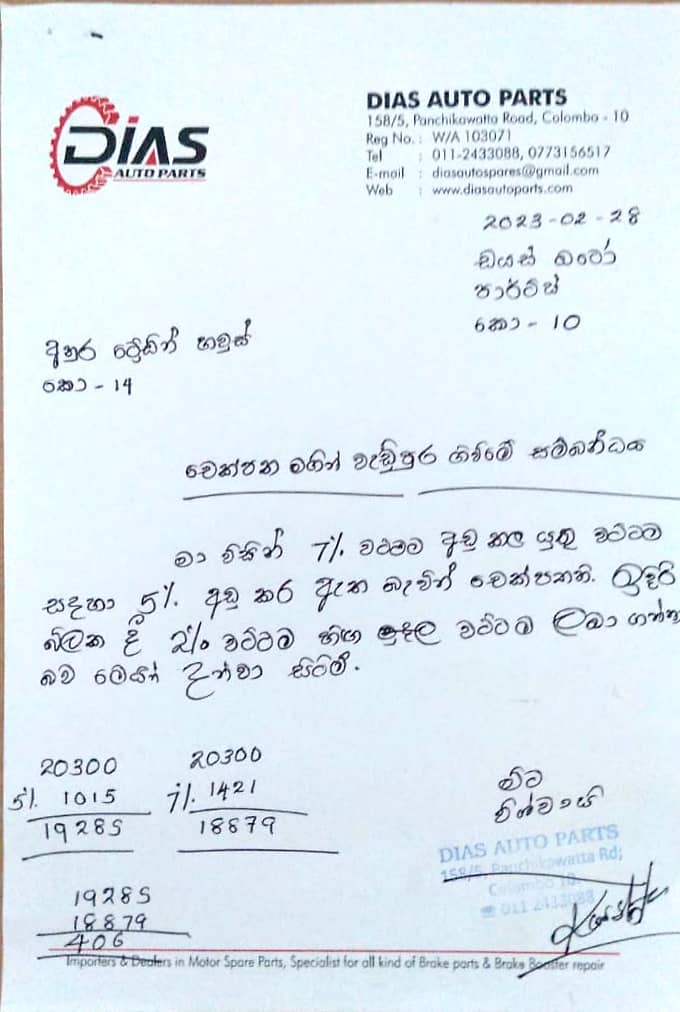 DIAS
AUTO PARTS
DIAS AUTO PARTS
158/5, Panchikawatta Road, Colombo - 10
Reg No. : W/A 103071
Tel : 011-2433088, 0773156517
E-mail : diasautospares@gmail.com
Web : www.diasautoparts.com
2023-02-28
ඩයස් ඔටෝ
පාර්ට්ස්
කො - 10
අතුර ට්‍රේඩින් හවුස්
කො - 14
චෙක්පත මගින් වැඩිපුර ගෙවීමේ සම්බන්ධය
මා විසින් 7% වට්ටම අඩු කල යුතු වට්ටම
සදහා 5% අඩු කර ඇත බැවින් චෙක්පතේ. ඉදිරි
බිලක දී 2% වට්ටම හිඟ මුදල වට්ටම ලබා ගන්නා
බව මෙයින් දන්වා සිටිමි.
20300
5% 1015
19285
20300
7% 1421
18879
19285
18879
406
මීට
විශ්වාසි
DIAS AUTO PARTS
158/5, Panchikawatta Rd;
Colombo 10.
☎ 011 2433088
Importers & Dealers in Motor Spare Parts, Specialist for all kind of Brake parts & Brake Booster repair